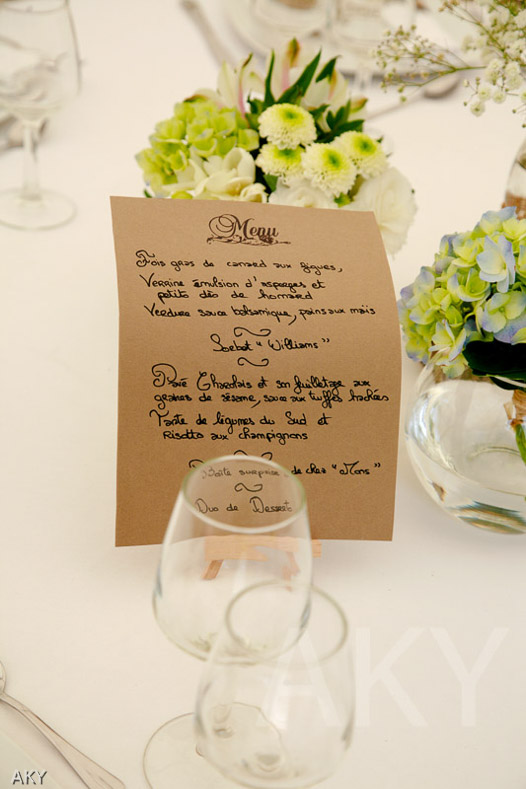 Menu
Fois gras de canard aux figues,
Verrine émulsion d'asperges et
petits dés de homard
Verdure sauce balsamique, pains aux maïs
Sorbet "Williams"
Pavé Charolais et son feuilletage aux
graines de sésame, sauce aux truffes hachées
Tarte de légumes du Sud et
Risotto aux champignons
Boîte surprise de chez "Mons"
Duo de Desserts
AKY
AKY